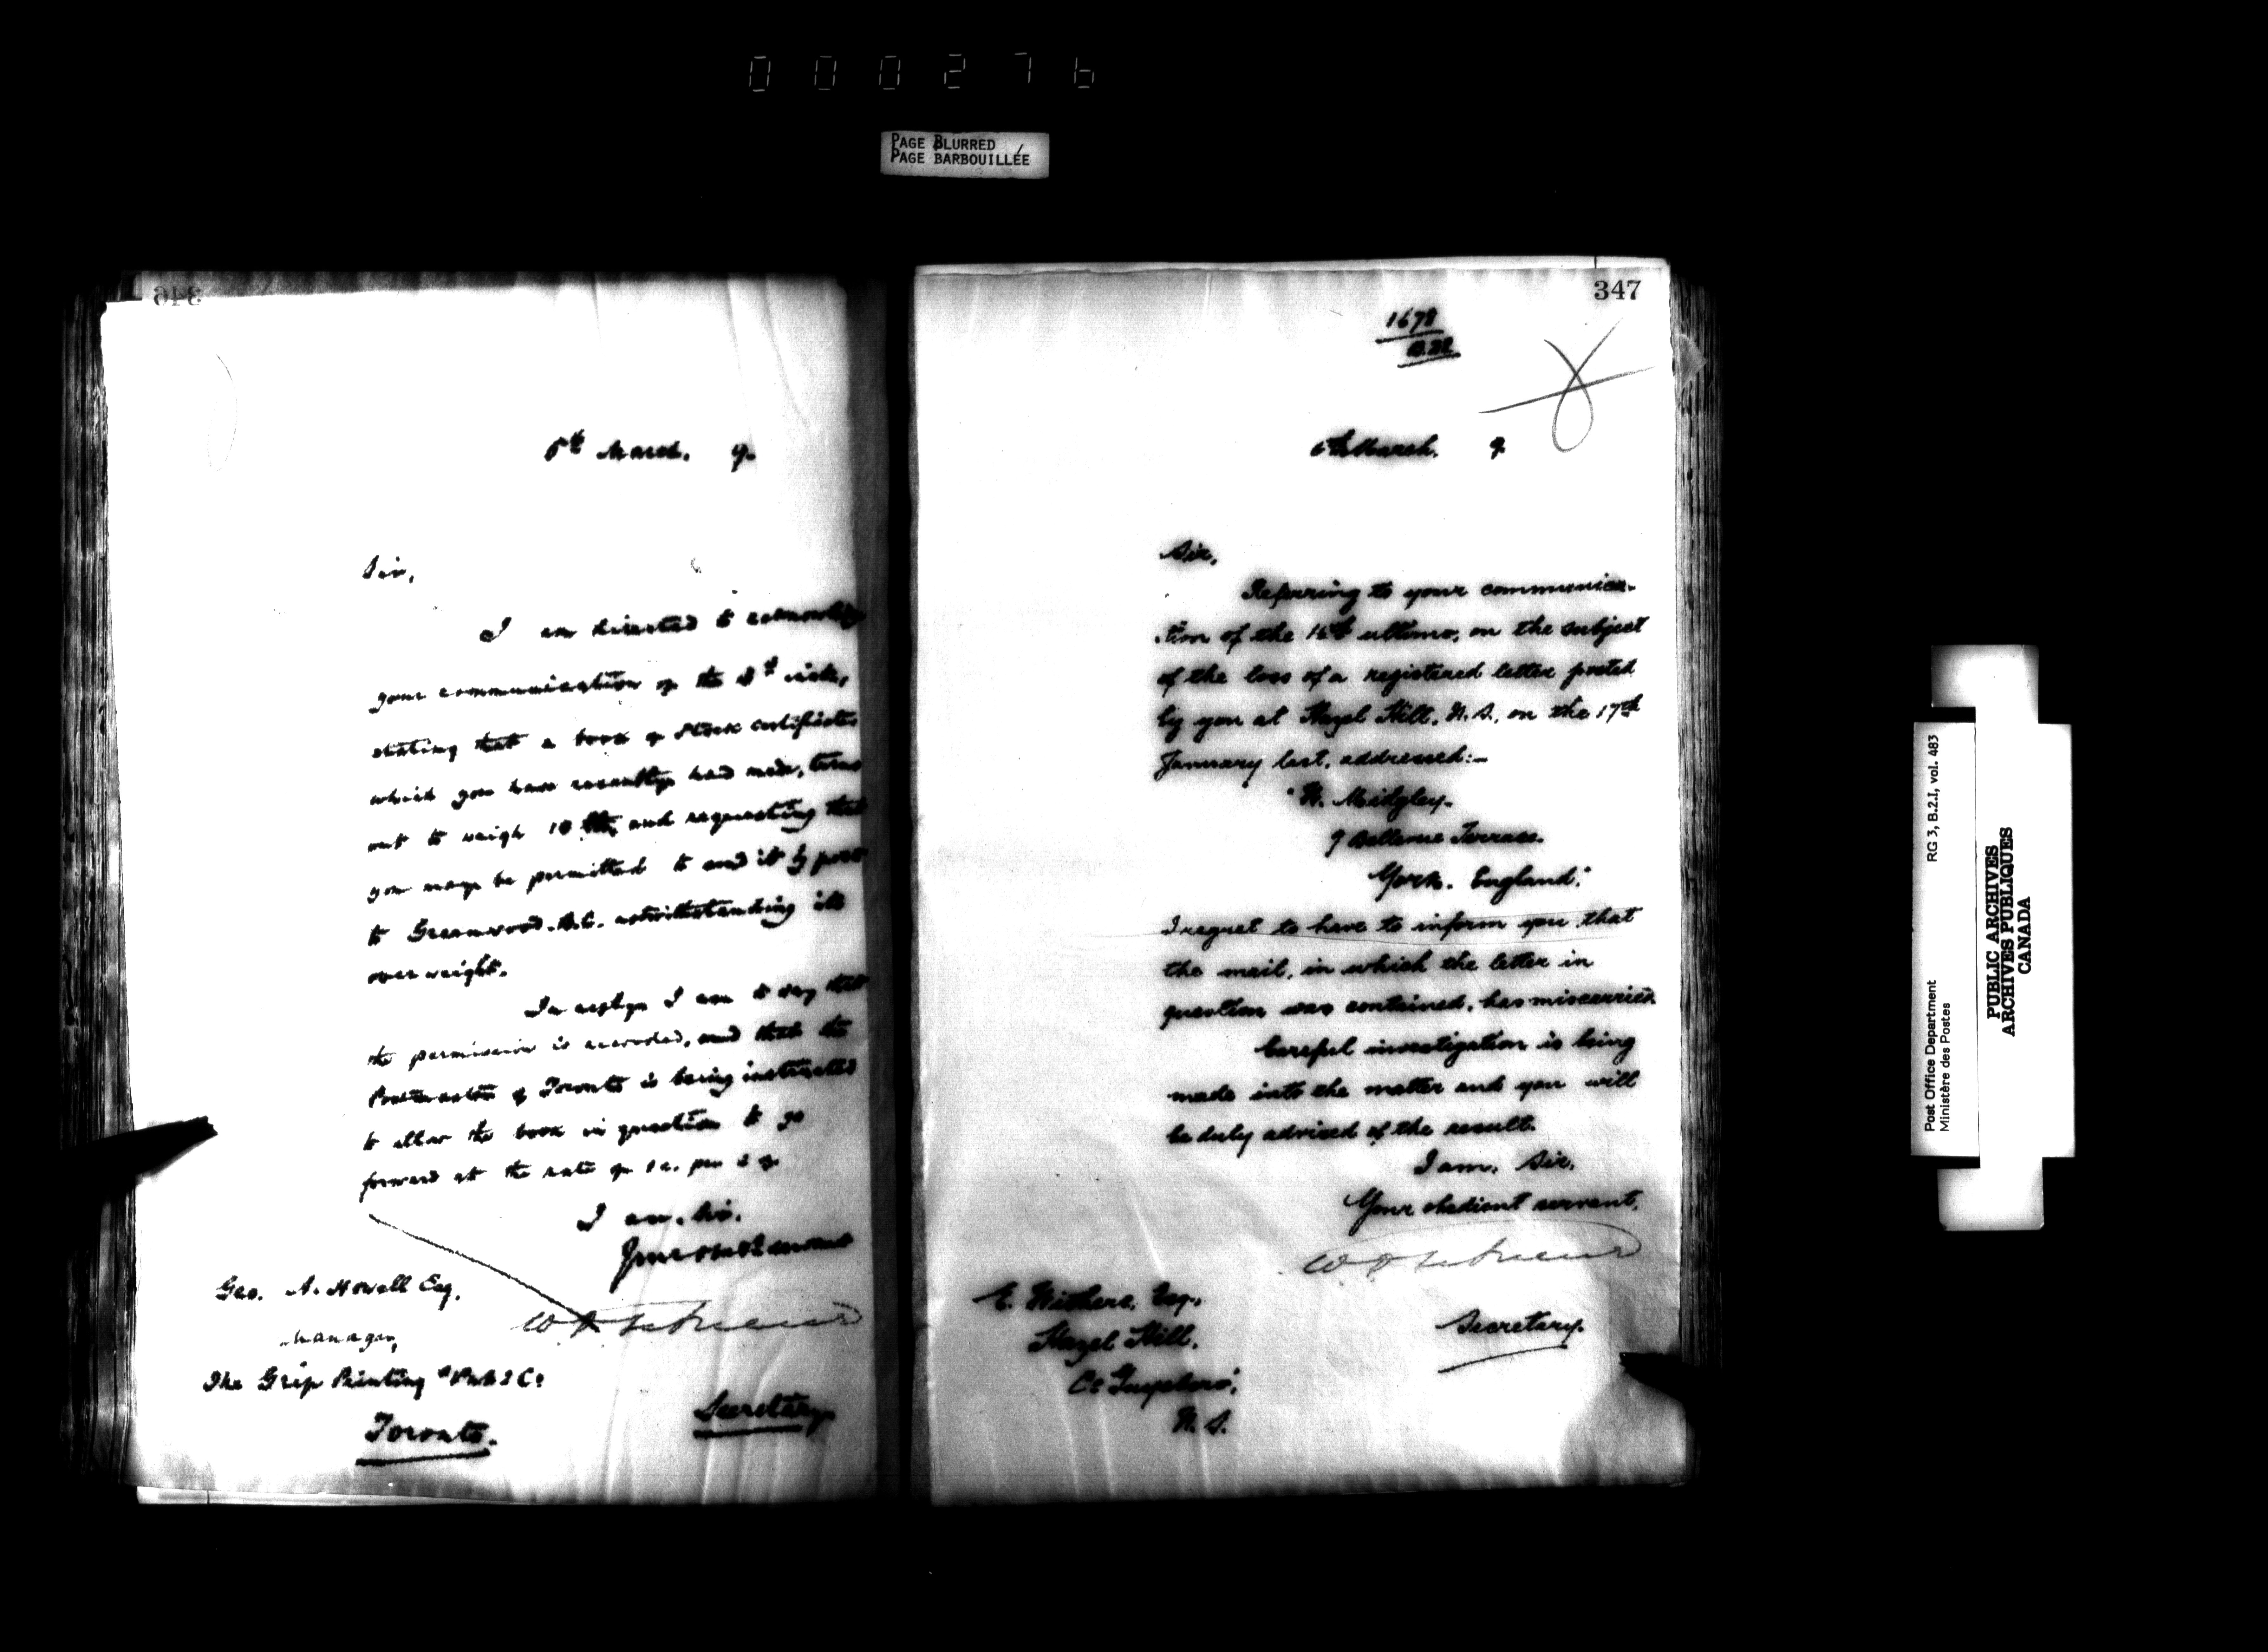 000276
PAGE BLURRED
PAGE BARBOUILLÉE
346
5th March. 9.
Sir,
I am directed to acknowledge
your communication of the 3d inst.,
stating that a book of Stock certificates
which you have recently had made, turns
out to weigh 10 lbs, and requesting that
you may be permitted to send it by post
to Greenwood. B.C. notwithstanding its
over weight.
In reply I am to say that
the permission is accorded, and that the
Postmaster of Toronto is being instructed
to allow the book in question to go
forward at the rate of 1c. per 2 oz.
I am, Sir.
Your obedt servant
Secretary
Geo. A. Howell Esq.
Manager,
The Grip Printing & Pub'g Co
Toronto.
347
1678
6th March. 9.
Sir,
Referring to your communica-
tion of the 16th ultimo, on the subject
of the loss of a registered letter posted
by you at Hazel Hill, N.S., on the 17th
January last, addressed:—
"H. Midgley.
9 Bellevue Terrace.
York. England."
I regret to have to inform you that
the mail, in which the letter in
question was contained, has miscarried.
Careful investigation is being
made into the matter and you will
be duly advised of the result.
I am, Sir.
Your obedient servant,
Secretary.
E. Withers, Esq.,
Hazel Hill,
Co Guysboro',
N. S.
Post Office Department RG 3, B.2.I, vol. 483
Ministère des Postes
PUBLIC ARCHIVES
ARCHIVES PUBLIQUES
CANADA